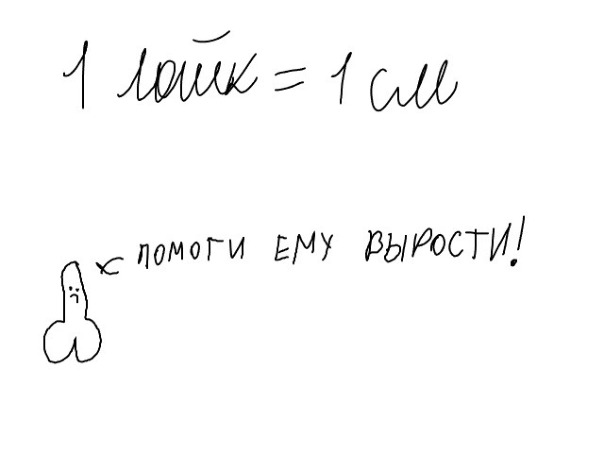 1 лайк = 1 см
ПОМОГИ ЕМУ ВЫРОСТИ!